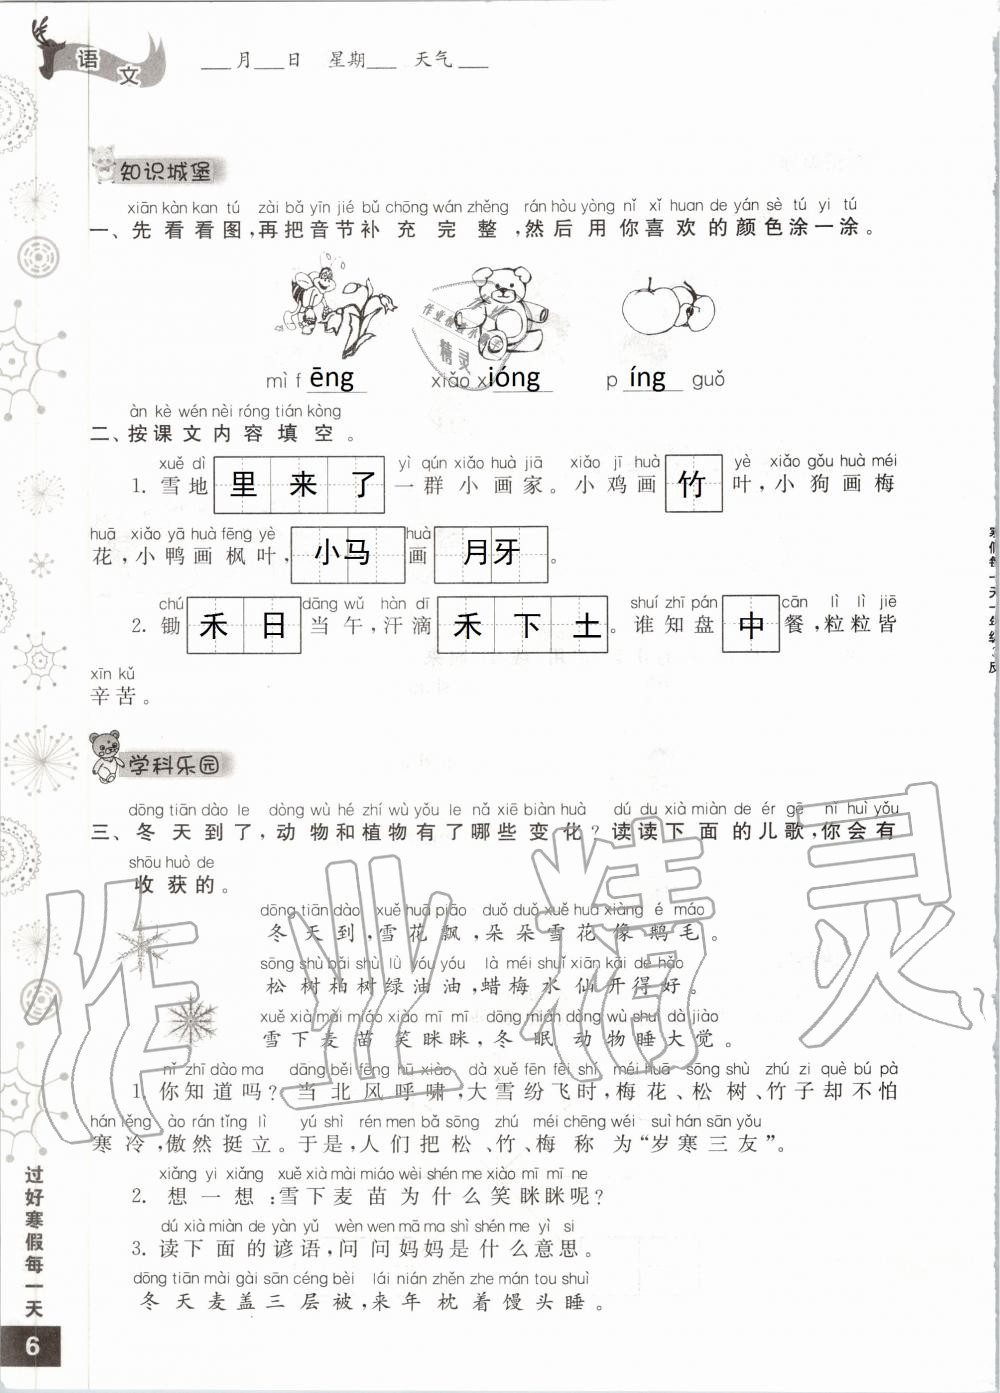 语文 ___月___日 星期___ 天气___
知识城堡
xiān kàn kan tú zài bǎ yīn jié bǔ chōng wán zhěng rán hòu yòng nǐ xǐ huan de yán sè tú yi tú
一、先看看图,再把音节补充完整,然后用你喜欢的颜色涂一涂。
mì f ēng xiǎo xióng p íng guǒ
àn kè wén nèi róng tián kòng
二、按课文内容填空。
xuě dì yì qún xiǎo huà jiā xiǎo jī huà yè xiǎo gǒu huà méi
1. 雪地里来了一群小画家。小鸡画竹叶,小狗画梅
huā xiǎo yā huà fēng yè huà
花,小鸭画枫叶,小马画月牙。
chú dāng wǔ hàn dī shuí zhī pán cān lì lì jiē
2. 锄禾日当午,汗滴禾下土。谁知盘中餐,粒粒皆
xīn kǔ
辛苦。
学科乐园
dōng tiān dào le dòng wù hé zhí wù yǒu le nǎ xiē biàn huà dú du xià miàn de ér gē nǐ huì yǒu
三、冬天到了,动物和植物有了哪些变化?读读下面的儿歌,你会有
shōu huò de
收获的。
dōng tiān dào xuě huā piāo duǒ duǒ xuě huā xiàng é máo
冬天到,雪花飘,朵朵雪花像鹅毛。
sōng shù bǎi shù lǜ yóu yóu là méi shuǐ xiān kāi de hǎo
松树柏树绿油油,蜡梅水仙开得好。
xuě xià mài miáo xiào mī mī dōng mián dòng wù shuì dà jiào
雪下麦苗笑眯眯,冬眠动物睡大觉。
nǐ zhī dào ma dāng běi fēng hū xiào dà xuě fēn fēi shí méi huā sōng shù zhú zi què bú pà
1. 你知道吗?当北风呼啸,大雪纷飞时,梅花、松树、竹子却不怕
hán lěng ào rán tǐng lì yú shì rén men bǎ sōng zhú méi chēng wéi suì hán sān yǒu
寒冷,傲然挺立。于是,人们把松、竹、梅称为“岁寒三友”。
xiǎng yi xiǎng xuě xià mài miáo wèi shén me xiào mī mī ne
2. 想一想:雪下麦苗为什么笑眯眯呢?
dú xià miàn de yàn yǔ wèn wen mā ma shì shén me yì si
3. 读下面的谚语,问问妈妈是什么意思。
dōng tiān mài gài sān céng bèi lái nián zhěn zhe mán tou shuì
冬天麦盖三层被,来年枕着馒头睡。
过好寒假每一天
6
作业精灵